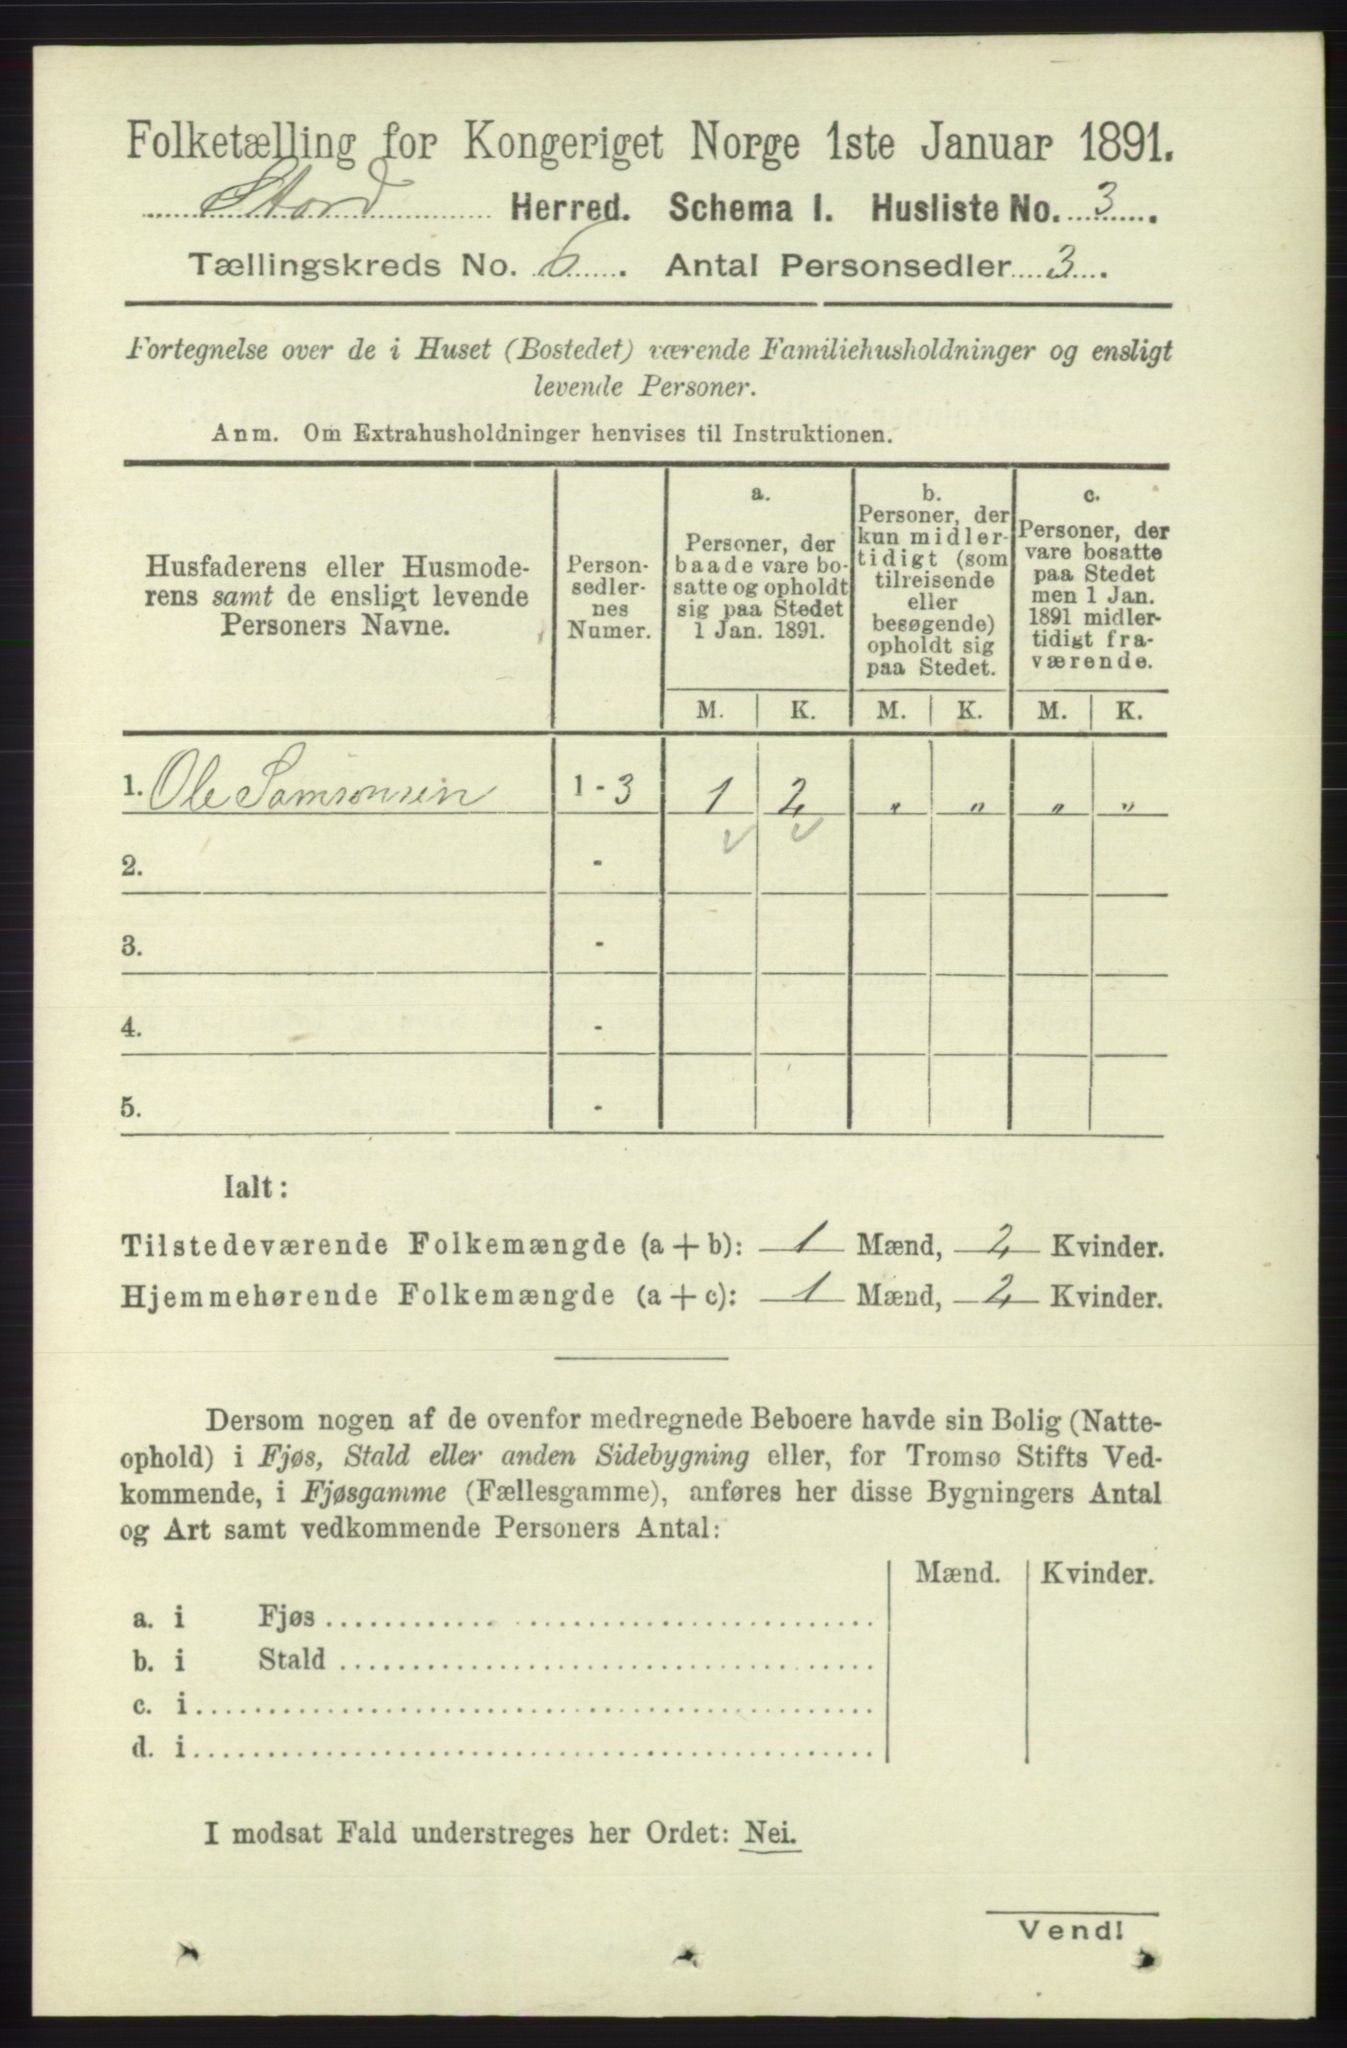 Folketælling for Kongeriget Norge 1ste Januar 1891.
Stord Herred. Schema I. Husliste No. 3.
Tællingskreds No. 6. Antal Personsedler 3.
Fortegnelse over de i Huset (Bostedet) værende Familiehusholdninger og ensligt
levende Personer.
Anm. Om Extrahusholdninger henvises til Instruktionen.
Husfaderens eller Husmode-
rens samt de ensligt levende
Personers Navne.
Person-
sedler-
nes
Numer.
a.
Personer, der
baade vare bo-
satte og opholdt
sig paa Stedet
1 Jan. 1891.
b.
Personer, der
kun midler-
tidigt (som
tilreisende
eller
besøgende)
opholdt sig
paa Stedet.
c.
Personer, der
vare bosatte
paa Stedet
men 1 Jan.
1891 midler-
tidigt fra-
værende.
M. K. M. K. M. K.
1. Ole Samsonsen 1 - 3 1 2 " " " "
2. -
3. -
4. -
5. -
Ialt:
Tilstedeværende Folkemængde (a + b): 1 Mænd, 2 Kvinder.
Hjemmehørende Folkemængde (a + c): 1 Mænd, 2 Kvinder.
Dersom nogen af de ovenfor medregnede Beboere havde sin Bolig (Natte-
ophold) i Fjøs, Stald eller anden Sidebygning eller, for Tromsø Stifts Ved-
kommende, i Fjøsgamme (Fællesgamme), anføres her disse Bygningers Antal
og Art samt vedkommende Personers Antal:
Mænd. Kvinder.
a. i Fjøs
b. i Stald
c. i
d. i
I modsat Fald understreges her Ordet: Nei.
Vend!